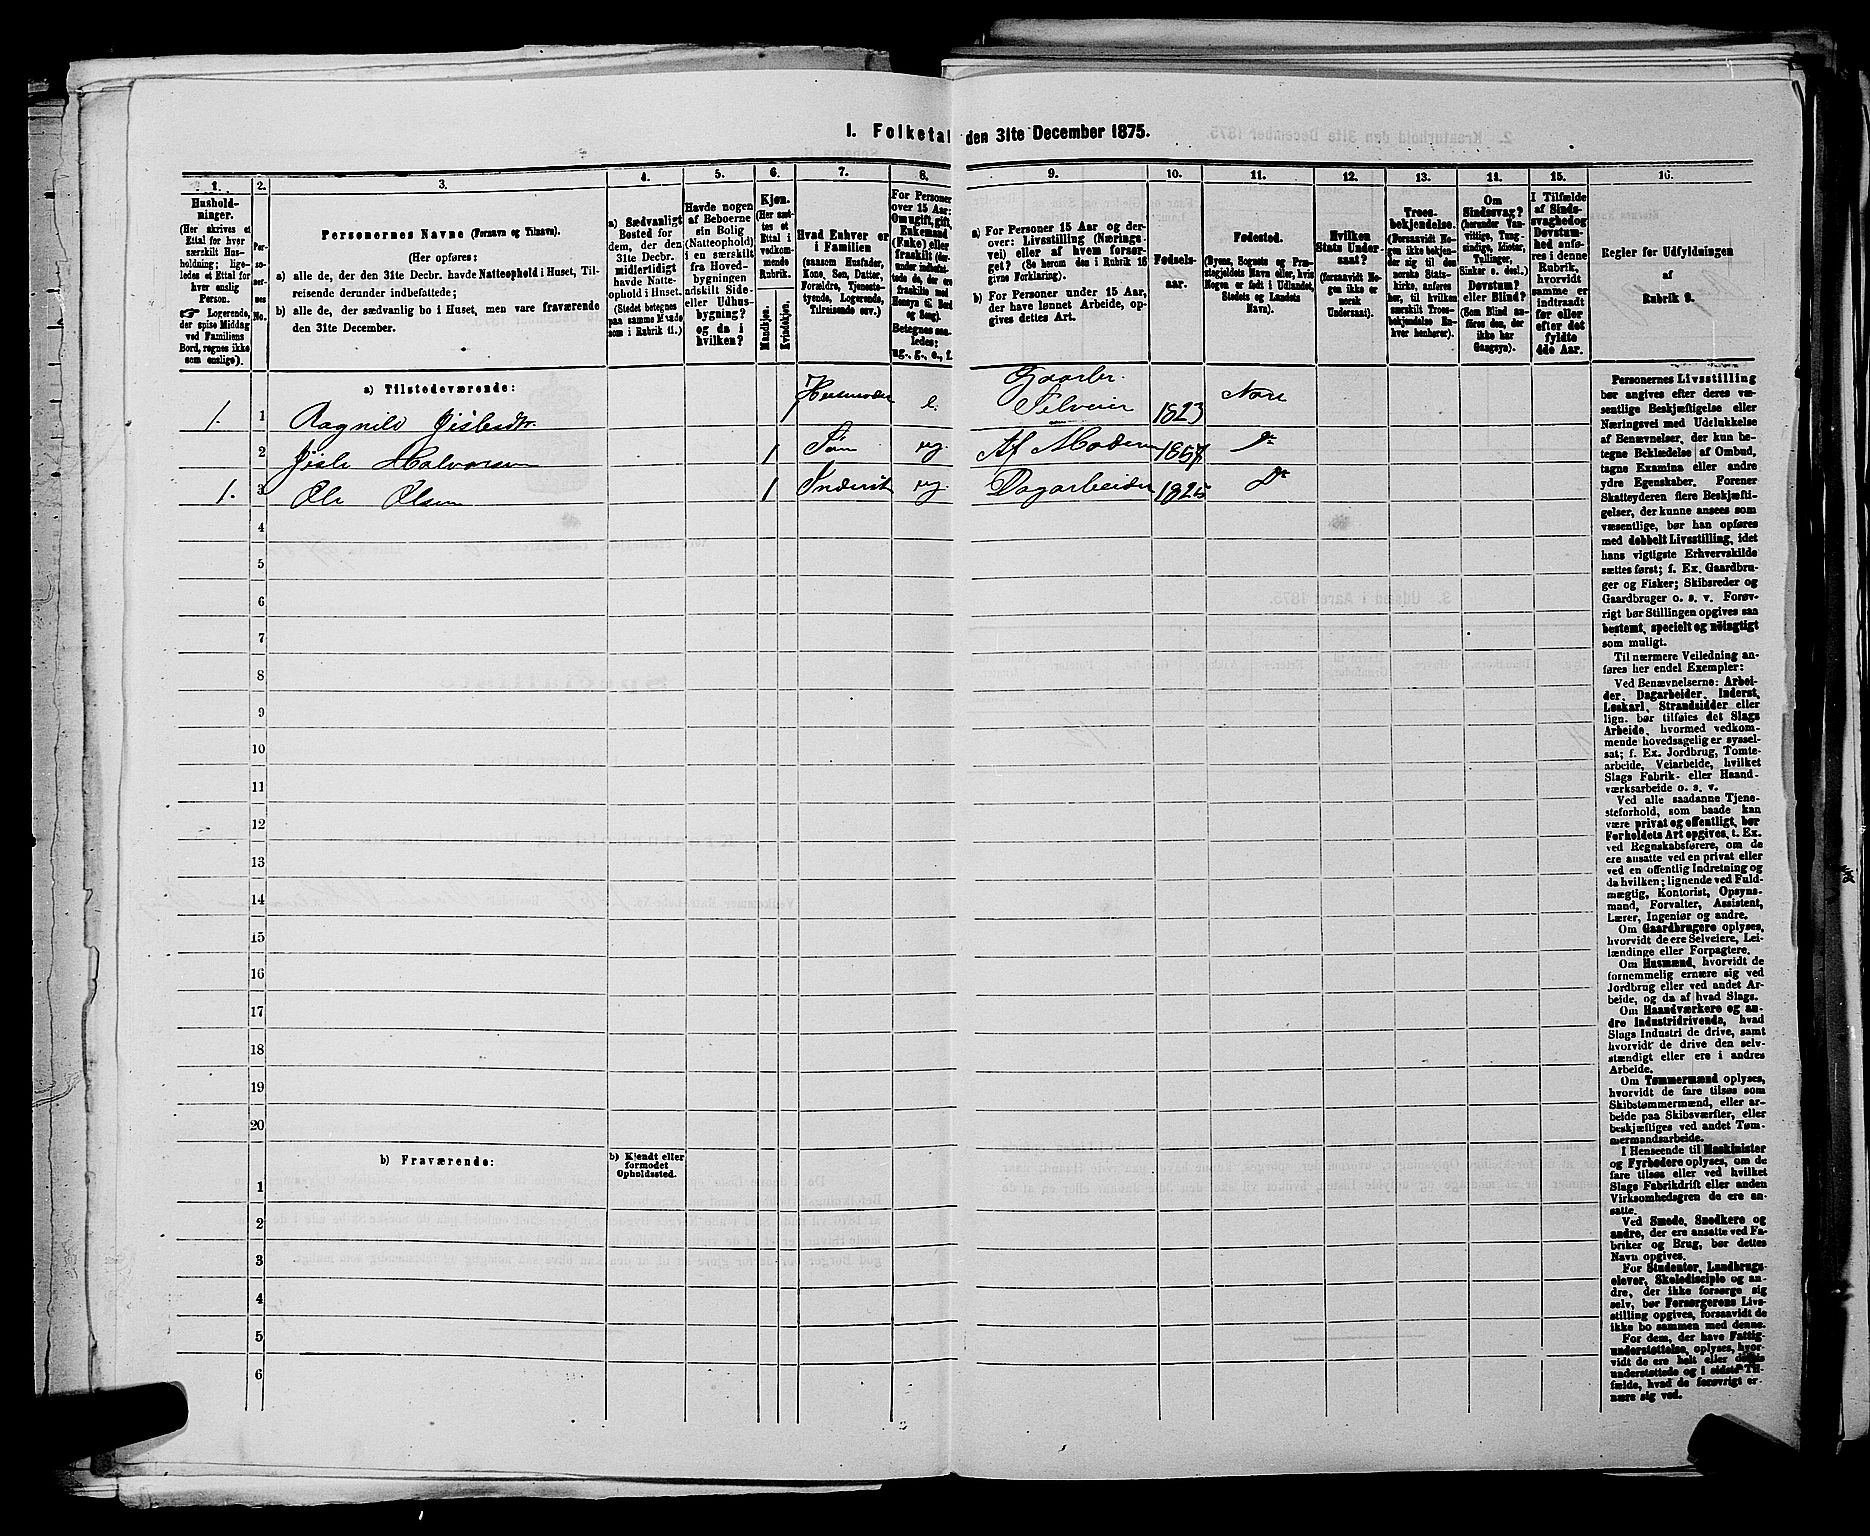 1. Folketal den 31te December 1875.
1. 2. 3. 4. 5. 6. 7. 8. 9. 10. 11. 12. 13. 14. 15. 16.
Hushold-
ninger.
(Her skrives et
Ettal for hver
særskilt Hus-
holdning; lige-
ledes et Ettal for
hver enslig
Person.
☞ Logerende,
der spise Middag
ved Familiens
Bord, regnes ikke
som enslige).
Per-
so-
ner-
nes
No.
Personernes Navne (Fornavn og Tilnavn).
(Her opføres:
a) alle de, der den 31te Decbr. havde Natteophold i Huset, Til-
reisende derunder indbefattede;
b) alle de, der sædvanlig bo i Huset, men vare fraværende
den 31te December.
a) Sædvanligt
Bosted for
dem, der den
31te Decbr.
midlertidigt
havde Natte-
ophold i Huset.
(Stedet betegnes
paa samme Maade
som i Rubrik 11.)
Havde nogen
af Beboerne
sin Bolig
(Natteophold)
i en særskilt
fra Hoved-
bygningen
adskilt Side-
eller Udhus-
bygning?
og da i
hvilken?
Kjøn.
(Her sæt-
tes et
Ettal i
vedkom-
mende
Rubrik.
Mandkjøn.
Kvindekjøn.
Hvad Enhver er
i Familien
(saasom Husfader,
Kone, Søn, Datter,
Forældre, Tjeneste-
tyende, Logerende,
Tilreisende osv.)
For Personer
over 15 Aar:
Om ugift, gift,
Enkemand
(Enke) eller
fraskilt (der-
under indbefat-
tede de, der ere
fraskilte med
Hensyn til Bord
og Seng).
Betegnes saa-
ledes:
ug., g., e., f.
a) For Personer 15 Aar og der-
over: Livsstilling (Nærings-
vei) eller af hvem forsør-
get? (Se herom den i Rubrik 16
givne Forklaring).
b) For Personer under 15 Aar,
der have lønnet Arbeide, op-
gives dettes Art.
Fødsels-
aar.
Fødested.
(Byens, Sognets og Præ-
stegjeldets Navn eller, hvis
Nogen er født i Udlandet,
Stedets og Landets
Navn).
Hvilken
Stats Under-
saat?
(forsaavidt No-
gen ikke er
norsk
Undersaat).
Troes-
bekjendelse.
(Forsaavidt No-
gen ikke bekjen-
der sig til den
norske Stats-
kirke, anføres
her, til hvilken
særskilt Troes-
bekjendelse En-
hver henhører).
Om
Sindssvag?
(herunder Van-
vittige, Tung-
sindige, Idioter,
Tullinger,
Sinker o. desl.)
Døvstum?
eller Blind?
(Som Blind an-
føres den, der
ikke har
Gangsyn).
I Tilfælde
af Sinds-
svaghed og
Døvstum-
hed anfø-
res i denne
Rubrik,
hvorvidt
samme er
indtraadt
før eller
efter det
fyldte
4de Aar.
Regler for Udfyldningen
af
Rubrik 9.
a) Tilstedeværende:
1. 1 Aagnild Gislesdtr. 1 Husmoder e. Gaardbr. Selveier 1823 Nore
2 Gisle Halvorsen 1 Søn ug. Af Moderen 1857 Do
1. 3 Ole Olsen 1 Inderst ug. Dagarbeider 1825 Do
4
5
6
7
8
9
10
11
12
13
14
15
16
17
18
19
20
b) Fraværende:
b) Kjendt eller
formodet
Opholdssted.
1
2
3
4
5
6
Personernes Livsstilling
bør angives efter deres væ-
sentlige Beskjæftigelse eller
Næringsvei med Udelukkelse
af Benævnelser, der kun be-
tegne Beklædelse af Ombud,
tagne Examina eller andre
ydre Egenskaber. Forener
Skatteyderen flere Beskjæfti-
gelser, der kunne ansees som
væsentlige, bør han opføres
med dobbelt Livsstilling, idet
hans vigtigste Erhvervskilde
sættes først; f. Ex. Gaardbru-
ger og Fisker; Skibsreder og
Gaardbruger o. s. v. Forøv-
rigt bør Stillingen opgives saa
bestemt, specielt og nøiagtigt
som muligt.
Til nærmere Veiledning an-
føres her endel Exempler:
Ved Benævnelserne: Arbei-
der, Dagarbeider, Inderst,
Løskarl, Strandsidder eller
lign. bør tilføies det Slags
Arbeide, hvormed vedkom-
mende hovedsagelig er syssel-
sat; f. Ex. Jordbrug, Tomte-
arbeide, Veiarbeide, hvilket
Slags Fabrik- eller Haand-
værksarbeide o. s. v.
Ved alle saadanne Tjene-
steforhold, som baade kan
være privat og offentligt, bør
Forholdets Art opgives, t. Ex.
ved Regnskabsførere, om de
ere ansatte ved en privat eller
ved en offentlig Indretning og
da hvilken; lignende ved Fuld-
mægtig, Kontorist, Opsyns-
mand, Forvalter, Assistent,
Lærer, Ingeniør og andre.
Om Gaardbrugere oplyses,
hvorvidt de ere Selveiere, Lei-
lændinge eller Forpagtere.
Om Husmænd, hvorvidt de
fornemmelig ernære sig ved
Jordbrug eller ved andet Ar-
beide, og da af hvad Slags.
Om Haandværkere og an-
dre Industridrivende, hvad
Slags Industri de drive, samt
hvorvidt de drive den selv-
stændigt eller ere i andres
Arbeide.
Om Tømmermænd oplyses,
hvorvidt de fare tilsøs som
Skibstømmermænd, eller ar-
beide paa Skibsværfter, eller
beskjæftiges ved andet Tøm-
mermandsarbeide.
I Henseende til Maskinister
og Fyrbødere oplyses, om de
fare tilsøs eller ved hvilket
Slags Fabrikdrift eller anden
Virksomhedsgren de ere an-
satte.
Ved Smede, Snedkere og
andre, der ere ansatte ved Fa-
briker og Brug, bør dettes
Navn opgives.
For Studenter, Landbrugs-
elever, Skoledisciple og an-
dre, der ikke forsørge sig
selv, bør Forsørgerens Livs-
stilling opgives, forsaavidt de
ikke bo sammen med denne.
For dem, der have Fattig-
understøttelse, oplyses, hvor-
vidt de ere helt eller delvis
understøttede og i sidste Til-
fælde, hvad de forøvrigt er-
nære sig ved.